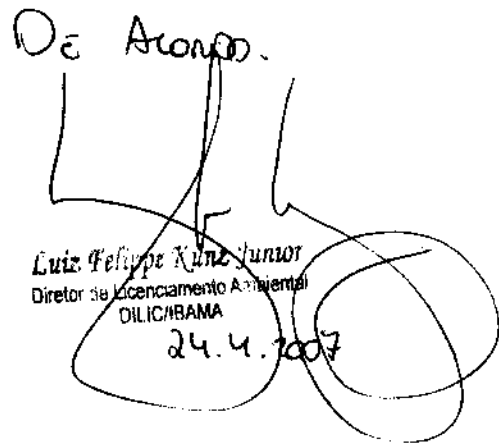 De Acordo.
Luiz Felippe Kunz Junior
Diretor de Licenciamento Ambiental
DILIC/IBAMA
24.4.2007